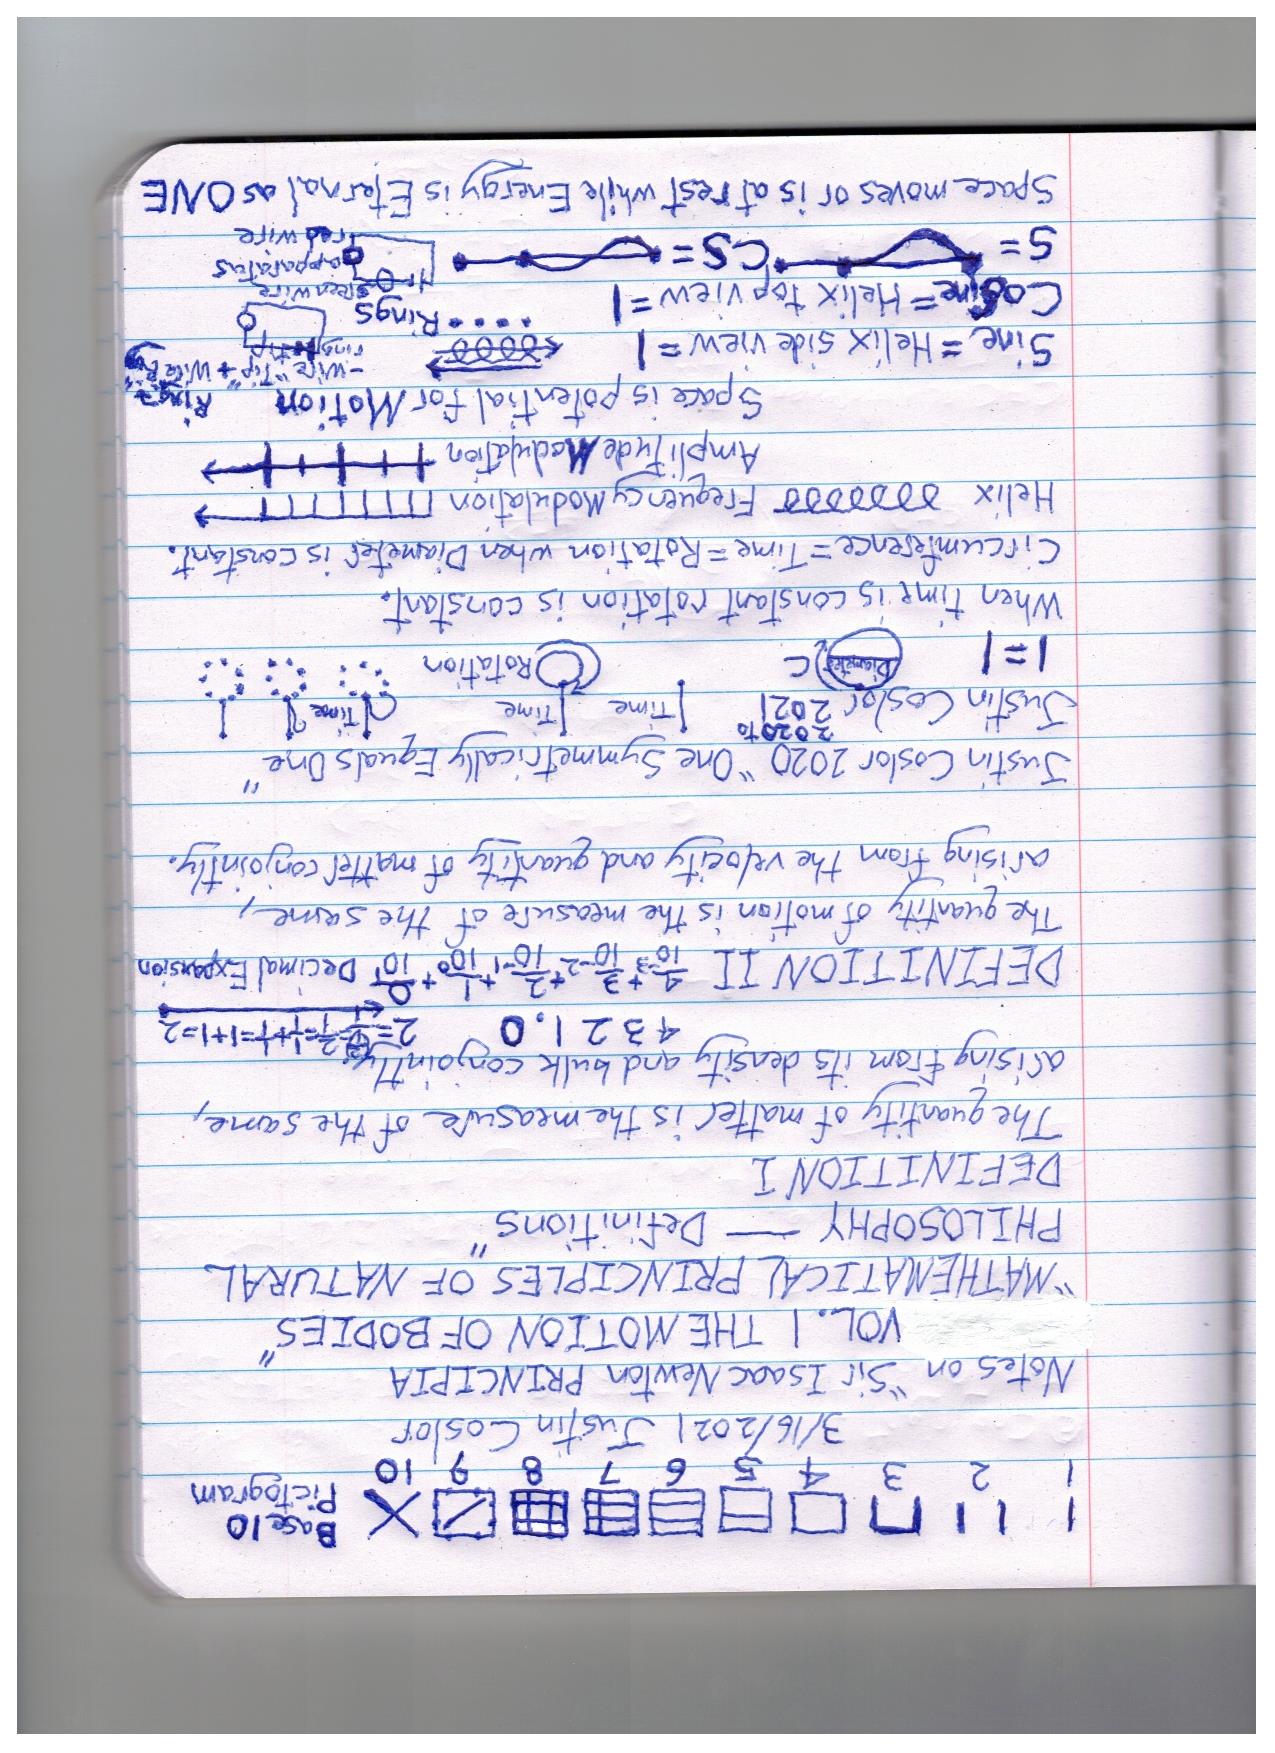 Base 10
Pictogram
1 2 3 4 5 6 7 8 9 10
3/16/2021 Justin Coslor
Notes on "Sir Isaac Newton PRINCIPIA
VOL. 1 THE MOTION OF BODIES"
"MATHEMATICAL PRINCIPLES OF NATURAL
PHILOSOPHY — Definitions"
DEFINITION I
The quantity of matter is the measure of the same,
arising from its density and bulk conjointly.
4 3 2 1 . 0
DEFINITION II 4/10^-3 + 3/10^-2 + 2/10^-1 + 1/10^0 + 0/10^1 Decimal Expansion
The quantity of motion is the measure of the same,
arising from the velocity and quantity of matter conjointly.
Justin Coslor 2020 "One Symmetrically Equals One"
Justin Coslor 2020 to 2021 Time Time Time
1=1 Diameter C Rotation
When time is constant rotation is constant.
Circumference = Time = Rotation when Diameter is constant.
Helix Frequency Modulation
Amplitude Modulation
Space is potential for Motion
Sine = Helix side view = 1
Cosine = Helix top view = 1 Rings
S = CS = green wire apparatus red wire
Space moves or is at rest while Energy is Eternal as ONE